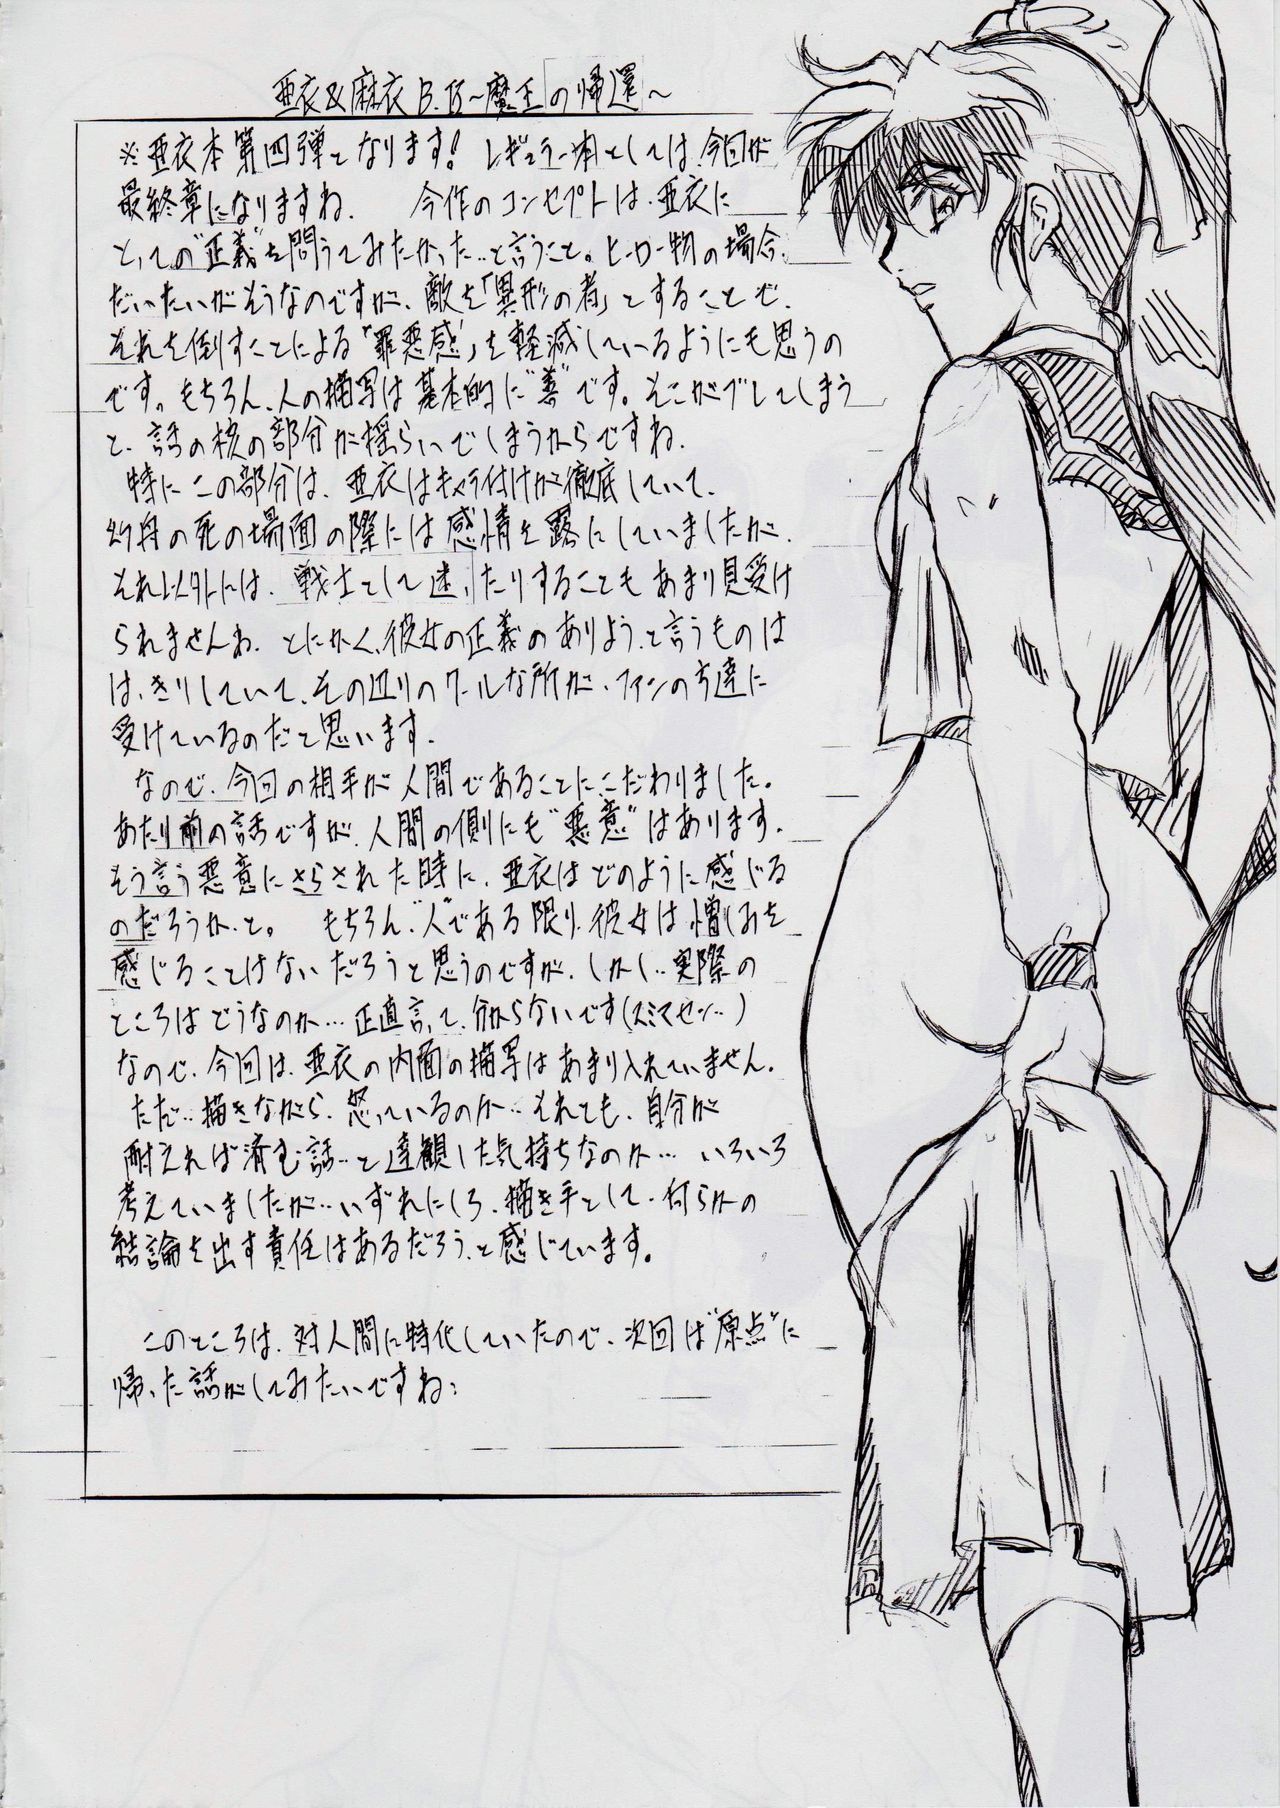 亜衣&麻衣B.B~魔王の帰還~
※亜衣本第四弾となります! レギュラー本としては、今回が
最終章になりますね. 今作のコンセプトは、亜衣に
とっての“正義”を問うてみたかった…と言うこと。ヒーロー物の場合、
だいたいがそうなのですが、敵を「異形の者」とすることで、
それを倒すことによる「罪悪感」を軽減しているようにも思うの
です。もちろん、人の描写は基本的に“善”です。そこがブレてしまう
と、話の核の部分が揺らいでしまうからですね.
特にこの部分は、亜衣はキャラ付けが徹底していて、
幻舟の死の場面の際には感情を露にしていましたが、
それ以外には、戦士として迷ったりすることもあまり見受け
られませんね. とにかく、彼女の正義のありよう、と言うものは
はっきりしていて、その辺りのクールな所が、ファンの方達に
受けているのだと思います.
なので、今回の相手が人間であることにこだわりました。
あたり前の話ですが、人間の側にも“悪意”はあります.
そう言う悪意にさらされた時に、亜衣はどのように感じる
のだろうか、と。 もちろん、“人”である限り、彼女は憎しみを
感じることはないだろうと思うのですが、しかし…実際の
ところはどうなのか…正直言って、分からないです(スミマセン…)
なので、今回は、亜衣の内面の描写はあまり入れていません.
ただ…描きながら、怒っているのか…それとも、自分が
耐えれば済む話…と達観した気持ちなのか… いろいろ
考えていましたが…いずれにしろ、描き手として、何らかの
結論を出す責任はあるだろう、と感じています。
このところは、対人間に特化していたので、次回は“原点”に
帰った話がしてみたいですね;